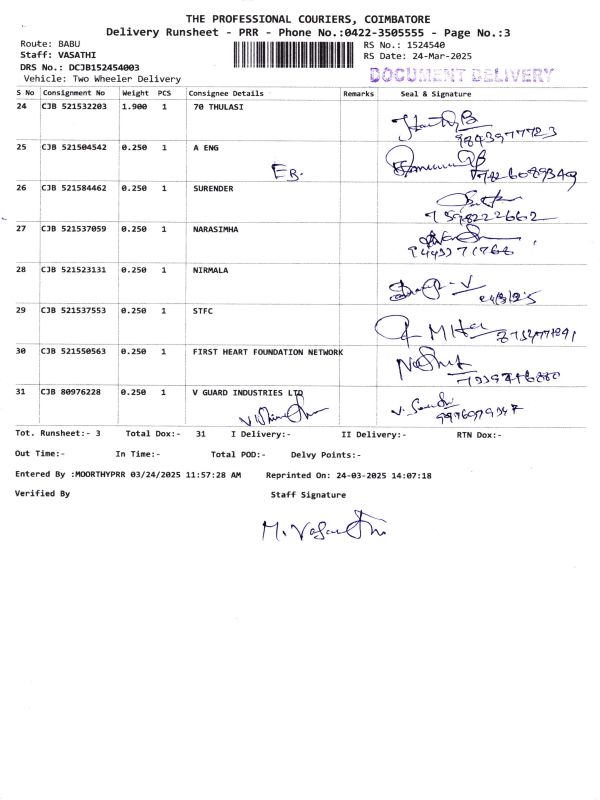 THE PROFESSIONAL COURIERS, COIMBATORE
Delivery Runsheet - PRR - Phone No.:0422-3505555 - Page No.:3
Route: BABU
RS No.: 1524540
Staff: VASATHI
RS Date: 24-Mar-2025
DRS No.: DCJB152454003
DOCUMENT DELIVERY
Vehicle: Two Wheeler Delivery
S No Consignment No Weight PCS Consignee Details Remarks Seal & Signature
24 CJB 521532203 1.900 1 70 THULASI
25 CJB 521504542 0.250 1 A ENG
EB.
26 CJB 521584462 0.250 1 SURENDER
27 CJB 521537059 0.250 1 NARASIMHA
28 CJB 521523131 0.250 1 NIRMALA
24/3/25
29 CJB 521537553 0.250 1 STFC
30 CJB 521550563 0.250 1 FIRST HEART FOUNDATION NETWORK
31 CJB 80976228 0.250 1 V GUARD INDUSTRIES LTD
Tot. Runsheet:- 3 Total Dox:- 31 I Delivery:- II Delivery:- RTN Dox:-
Out Time:- In Time:- Total POD:- Delvy Points:-
Entered By :MOORTHYPRR 03/24/2025 11:57:28 AM Reprinted On: 24-03-2025 14:07:18
Verified By Staff Signature